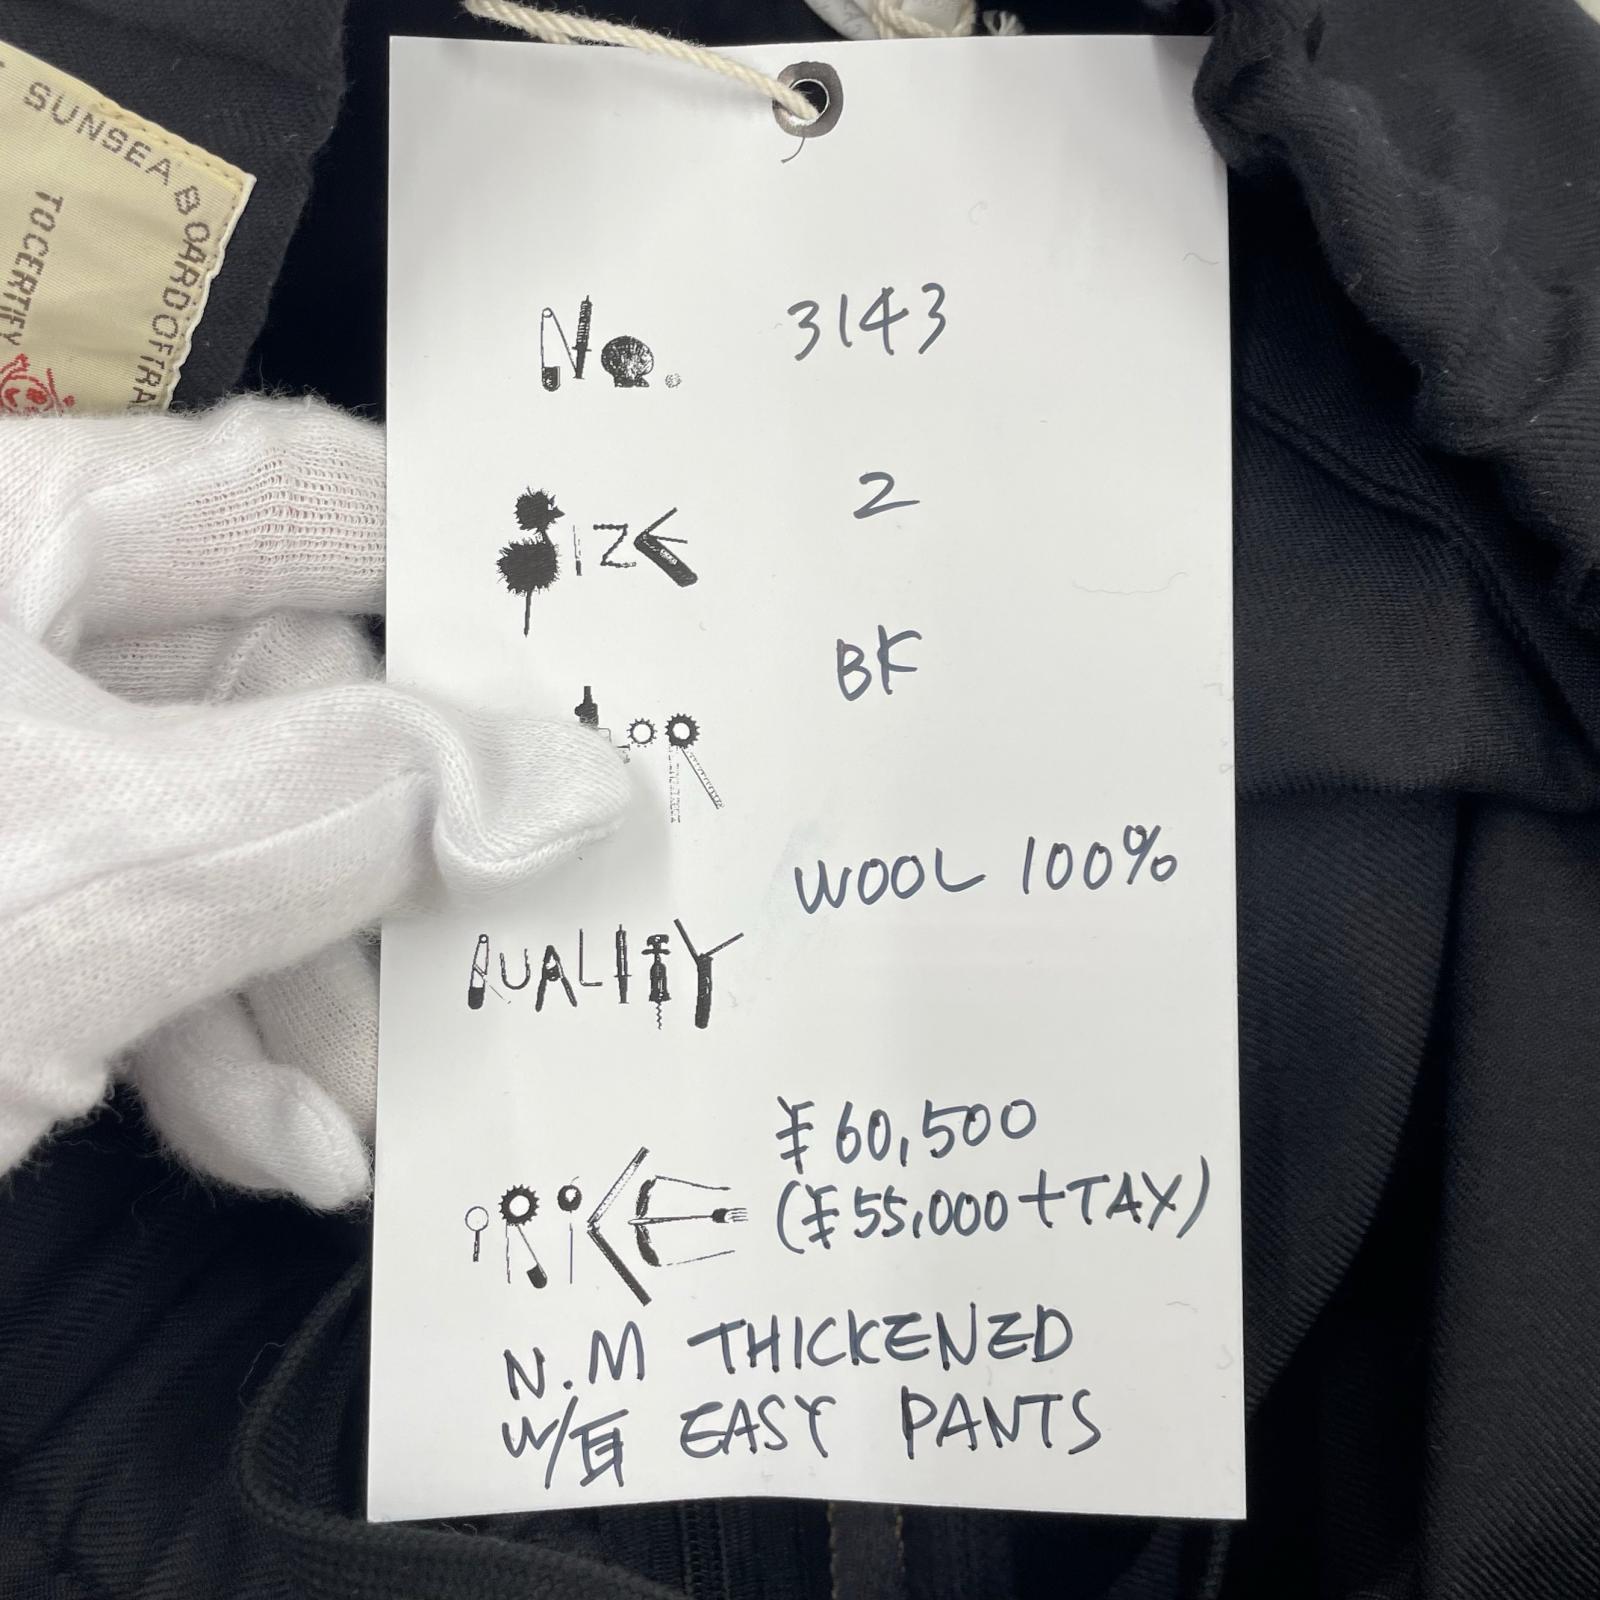 SUNSEA BOARD OF TRA
TO CERTIFY
No. 3143
SIZE 2
LOR BK
QUALITY WOOL 100%
PRICE ¥60,500
(¥55,000+TAX)
N.M THICKENED
W/耳 EASY PANTS